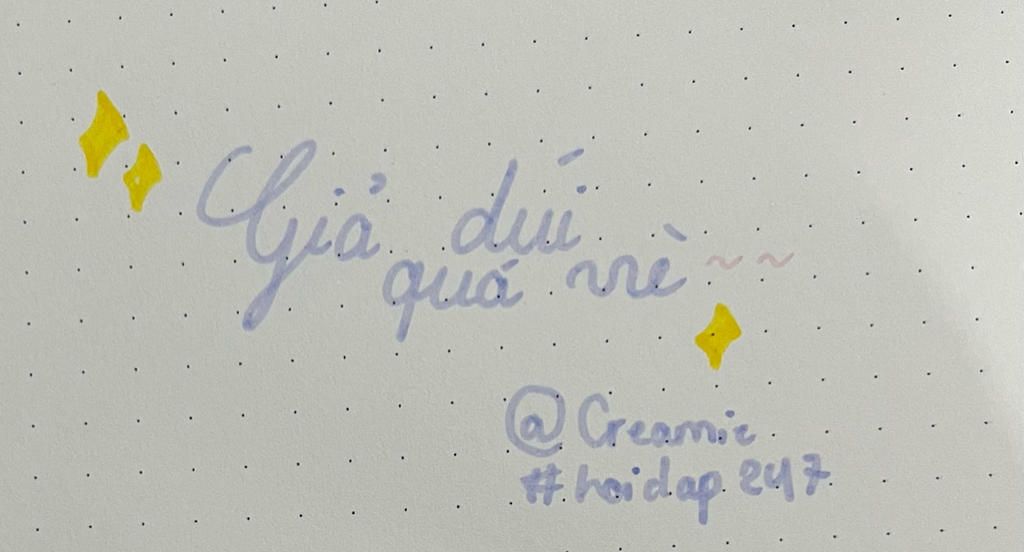 Giả dúi
quá vè ~~
@Creamie
#hoidap247